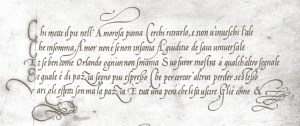 Chi mette il piè nell'Amorosa pania
Cerchi ritrarlo, e non v'inveschi l'ale
Che in somma Amor non è se non insania
A giuditio de savi universale
E se ben come Orlando ogn'un non smania
Suo furor mostra à qualch'altro segnale
E quale è di pazzia segno piu espresso
Che per altrui perder se stesso
Varii gli effetti son ma la pazzia
E tutt'una però che li fa uscire
Gli è come &